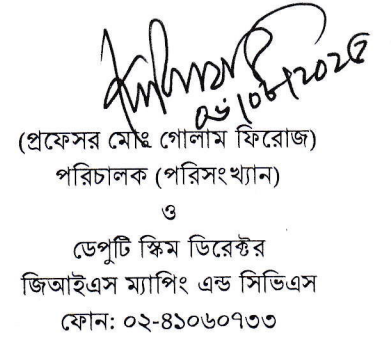 (প্রফেসর মোঃ গোলাম ফিরোজ)
পরিচালক (পরিসংখ্যান)
ও
ডেপুটি স্কিম ডিরেক্টর
জিআইএস ম্যাপিং এন্ড সিভিএস
ফোন: ০২-৪১০৬০৭৩৩